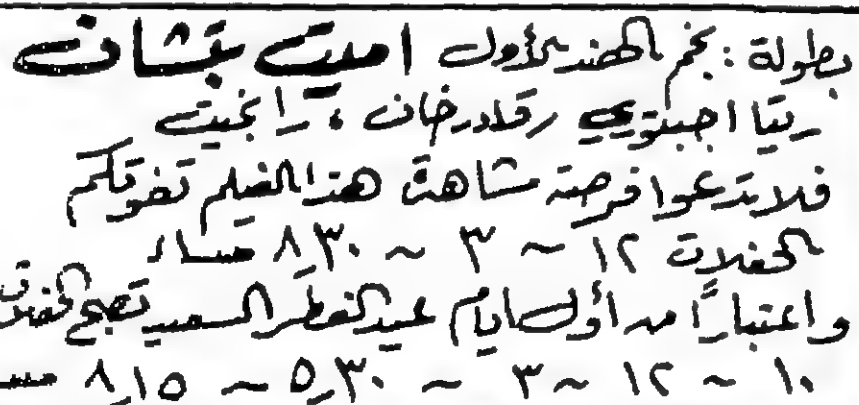 بطولة : نجم الهند الأول امیت بتشان
ریتا اجنبوتري ر قادر خان ، رانجیت
فلا تدعوا فرصة مشاهدة هذا الفيلم تفوتكم
الحفلات ١٢ ~ ٣ ~ ٨,٣٠ مساء
واعتبارًا من أول ايام عيد الفطر السعيد تصبح الحفلات
١٠ ~ ١٢ ~ ٣ ~ ٥,٣٠ ~ ٨,١٥